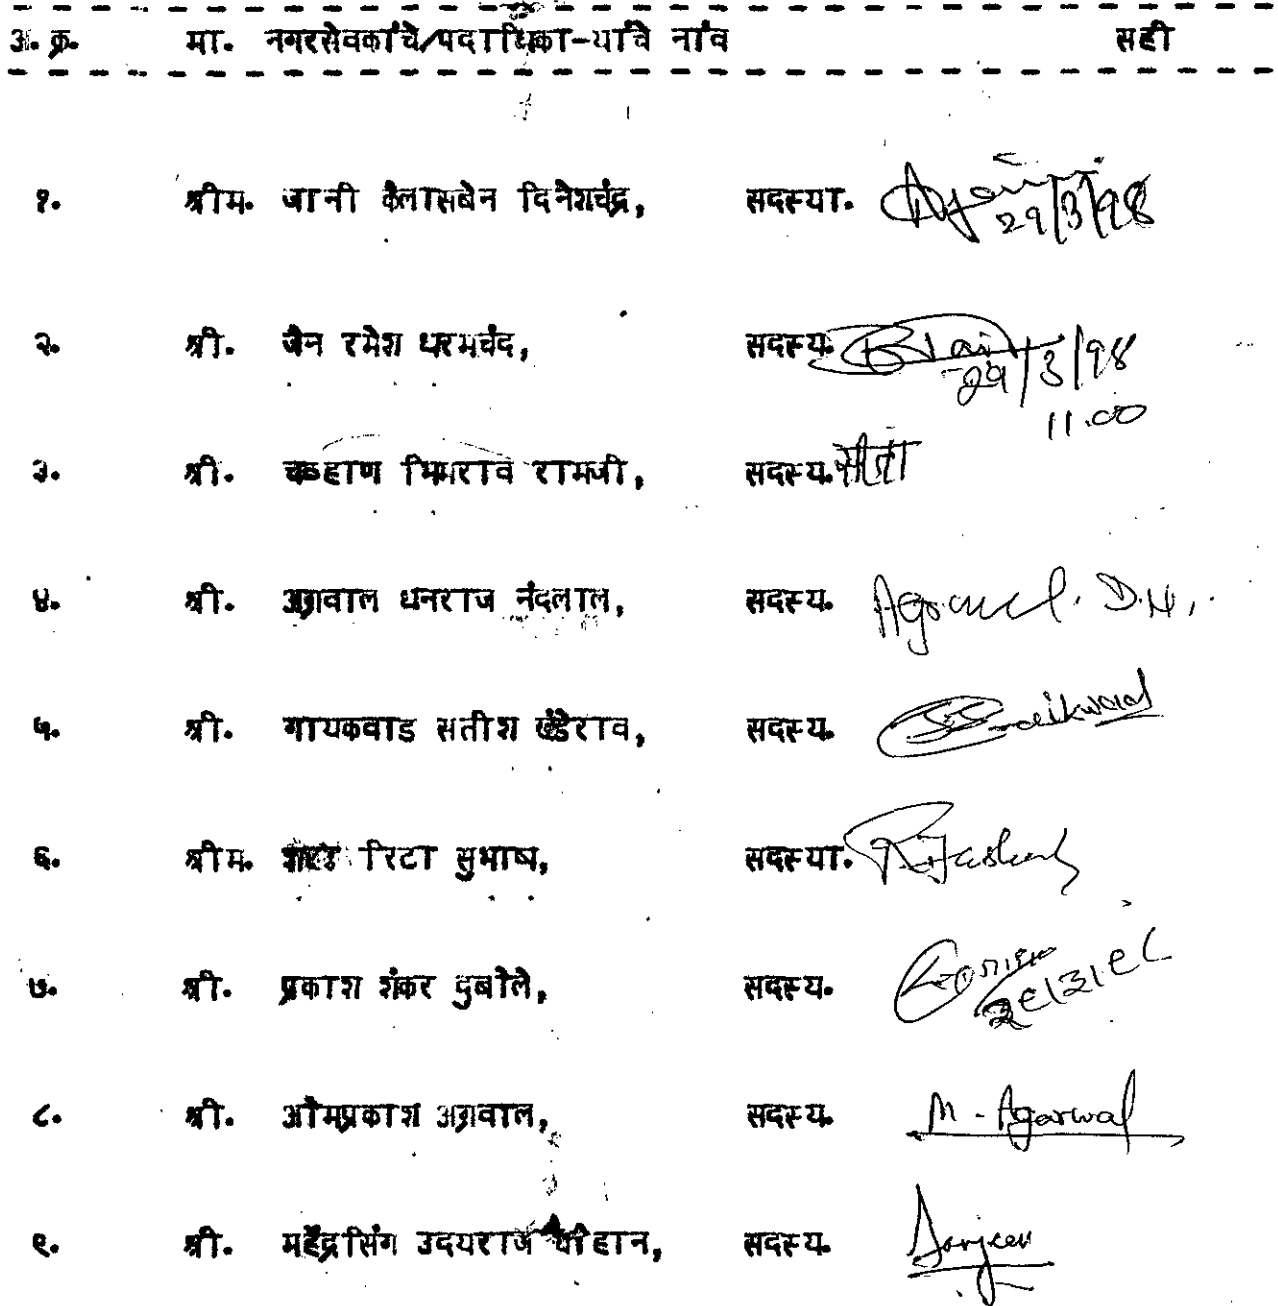 अ. क्र. मा. नगरसेवकांचे/पदाधिका-यांचे नांव सही
१. श्रीम. जानी कैलासबेन दिनेशचंद्र, सदस्या. 29/3/98
२. श्री. जैन रमेश धरमचंद, सदस्य. 29/3/98
11.00
३. श्री. चव्हाण भिमराव रामजी, सदस्य.
४. श्री. अग्रवाल धनराज नंदलाल, सदस्य. Agrawal. D.N.
५. श्री. गायकवाड सतीश खंडेराव, सदस्य.
६. श्रीम. रिटा सुभाष, सदस्या.
७. श्री. प्रकाश शंकर दुबोले, सदस्य. २९/३/९८
८. श्री. ओमप्रकाश अग्रवाल, सदस्य. M - Agarwal
९. श्री. महेंद्रसिंग उदयराज चौहान, सदस्य.